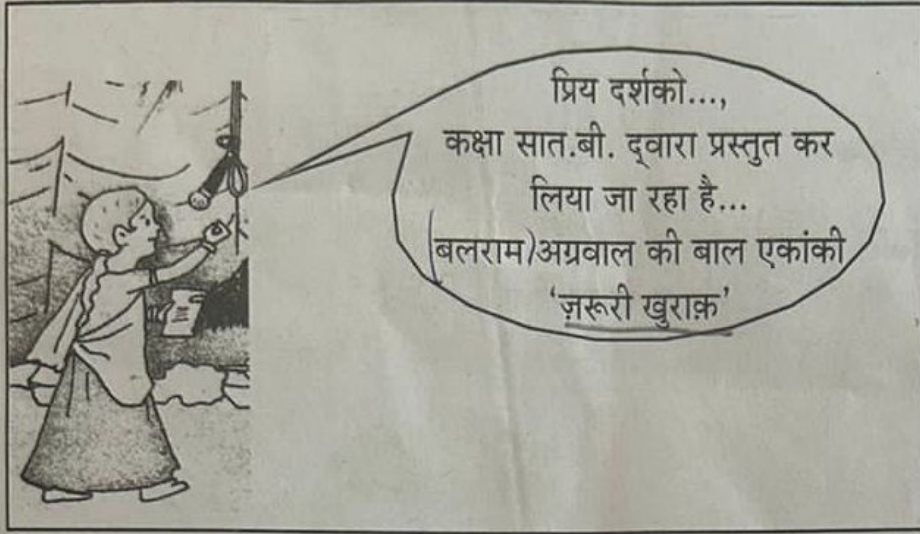 प्रिय दर्शको...,
कक्षा सात.बी. द्वारा प्रस्तुत कर
लिया जा रहा है...
(बलराम)अग्रवाल की बाल एकांकी
‘ज़रूरी खुराक़’